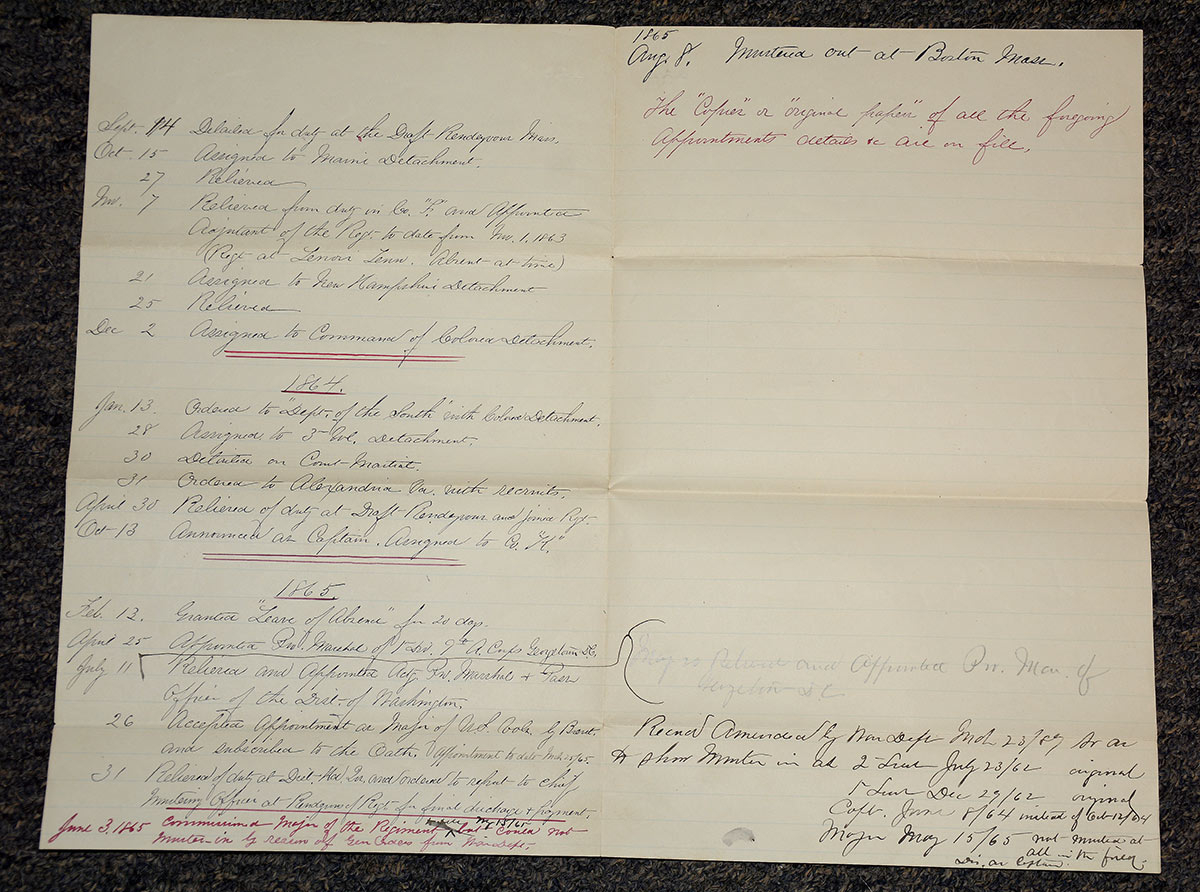 Sept. 14 Detailed for duty at the Draft Rendezvous Mass.
Oct. 15 Assigned to Maine Detachment.
27 Relieved
Nov. 7 Relieved from duty in Co. "F." and Appointed
Adjutant of the Regt. to date from Nov. 1, 1863
(Regt at Lenoir Tenn. Absent at time)
21 Assigned to New Hampshire Detachment
25 Relieved
Dec 2 Assigned to Command of Colored Detachment.
1864.
Jan. 13. Ordered to "Dept. of the South" with Colored Detachment.
28 Assigned to Detachment.
30 Detailed on Court-Martial.
31 Ordered to Alexandria Va. with recruits.
April 30 Relieved of duty at Draft Rendezvous and joined Regt.
Oct 13 Announced as Captain. Assigned to Co. "H."
1865.
Feb. 12. Granted "Leave of Absence" for 20 days.
April 25 Appointed Prov. Marshal of 1st Div. 9th A. Corps Georgetown D.C.
July 11 Relieved and Appointed Actg. Prov. Marshal & Pass
Officer of the Dist. of Washington.
26 Accepted Appointment as Major of U.S. Vols. by Brevet
and subscribed to the Oath. (Appointment to date
31 Relieved of duty at Dist. Hd. Qrs. and ordered to report to chief
Mustering Officer at Rendezvous of Regt. for final discharge & payment.
June 3, 1865 Commissioned Major of the Regiment but could not
Muster-in by reason of Gen Orders from War Dept.
1865
Aug. 8. Mustered out at Boston Mass.
The "Copies" or "original papers" of all the foregoing
Appointments details &c are on file.
Relieved and Appointed Prov. Mar. of
Georgetown D C
Record Amended by War Dept Mch 23/89 so as
to show Muster in as 2d Lieut July 23/62 original
1st Lieut Dec 29/62 original
Capt. June 8/64 instead of Oct
Major May 15/65 not mustered at
all in the field
as Captain